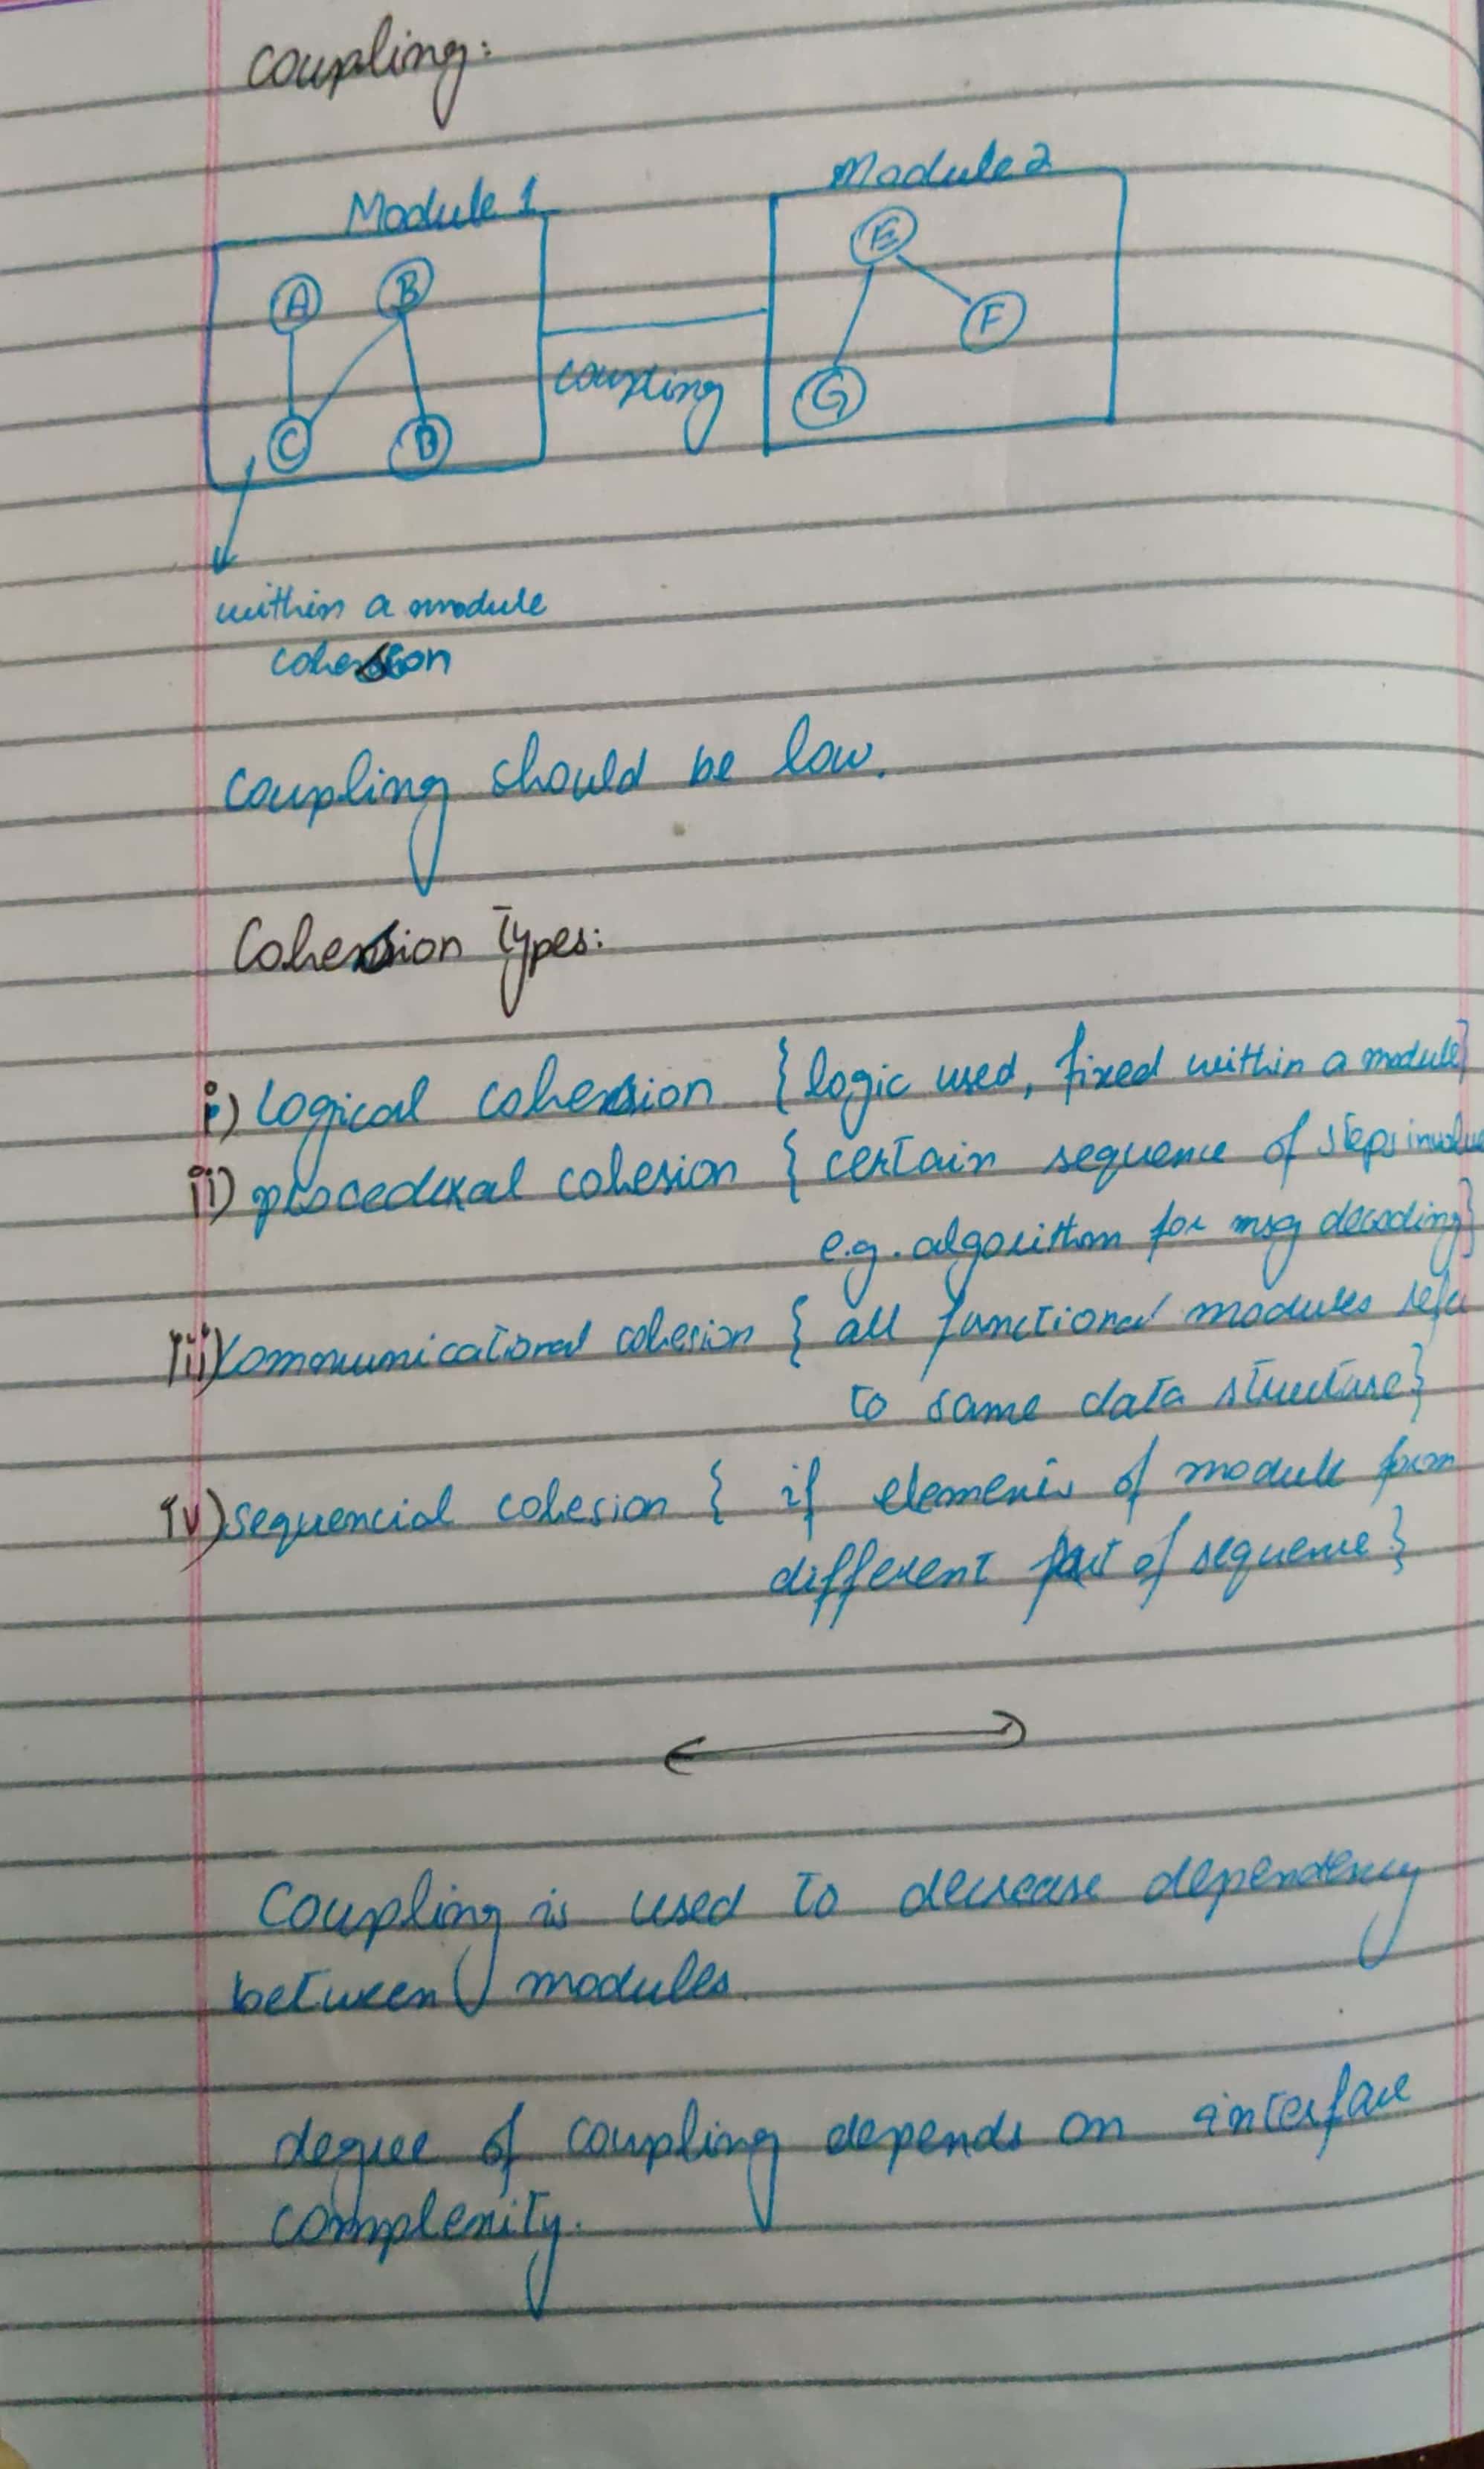 coupling:
Module 1
Module 2
A
B
C
D
coupling
E
F
G
within a module
cohesion
coupling should be low.
Cohesion Types:
i) logical cohesion { logic used, fixed within a module}
ii) procedural cohesion { certain sequence of steps
e.g. algorithm for msg decoding}
iii) communicational cohesion { all functional modules
to same data structure}
iv) sequencial cohesion { if elements of module form
different part of sequence}
Coupling is used to decrease dependency
between modules.
degree of coupling depends on interface
complexity.